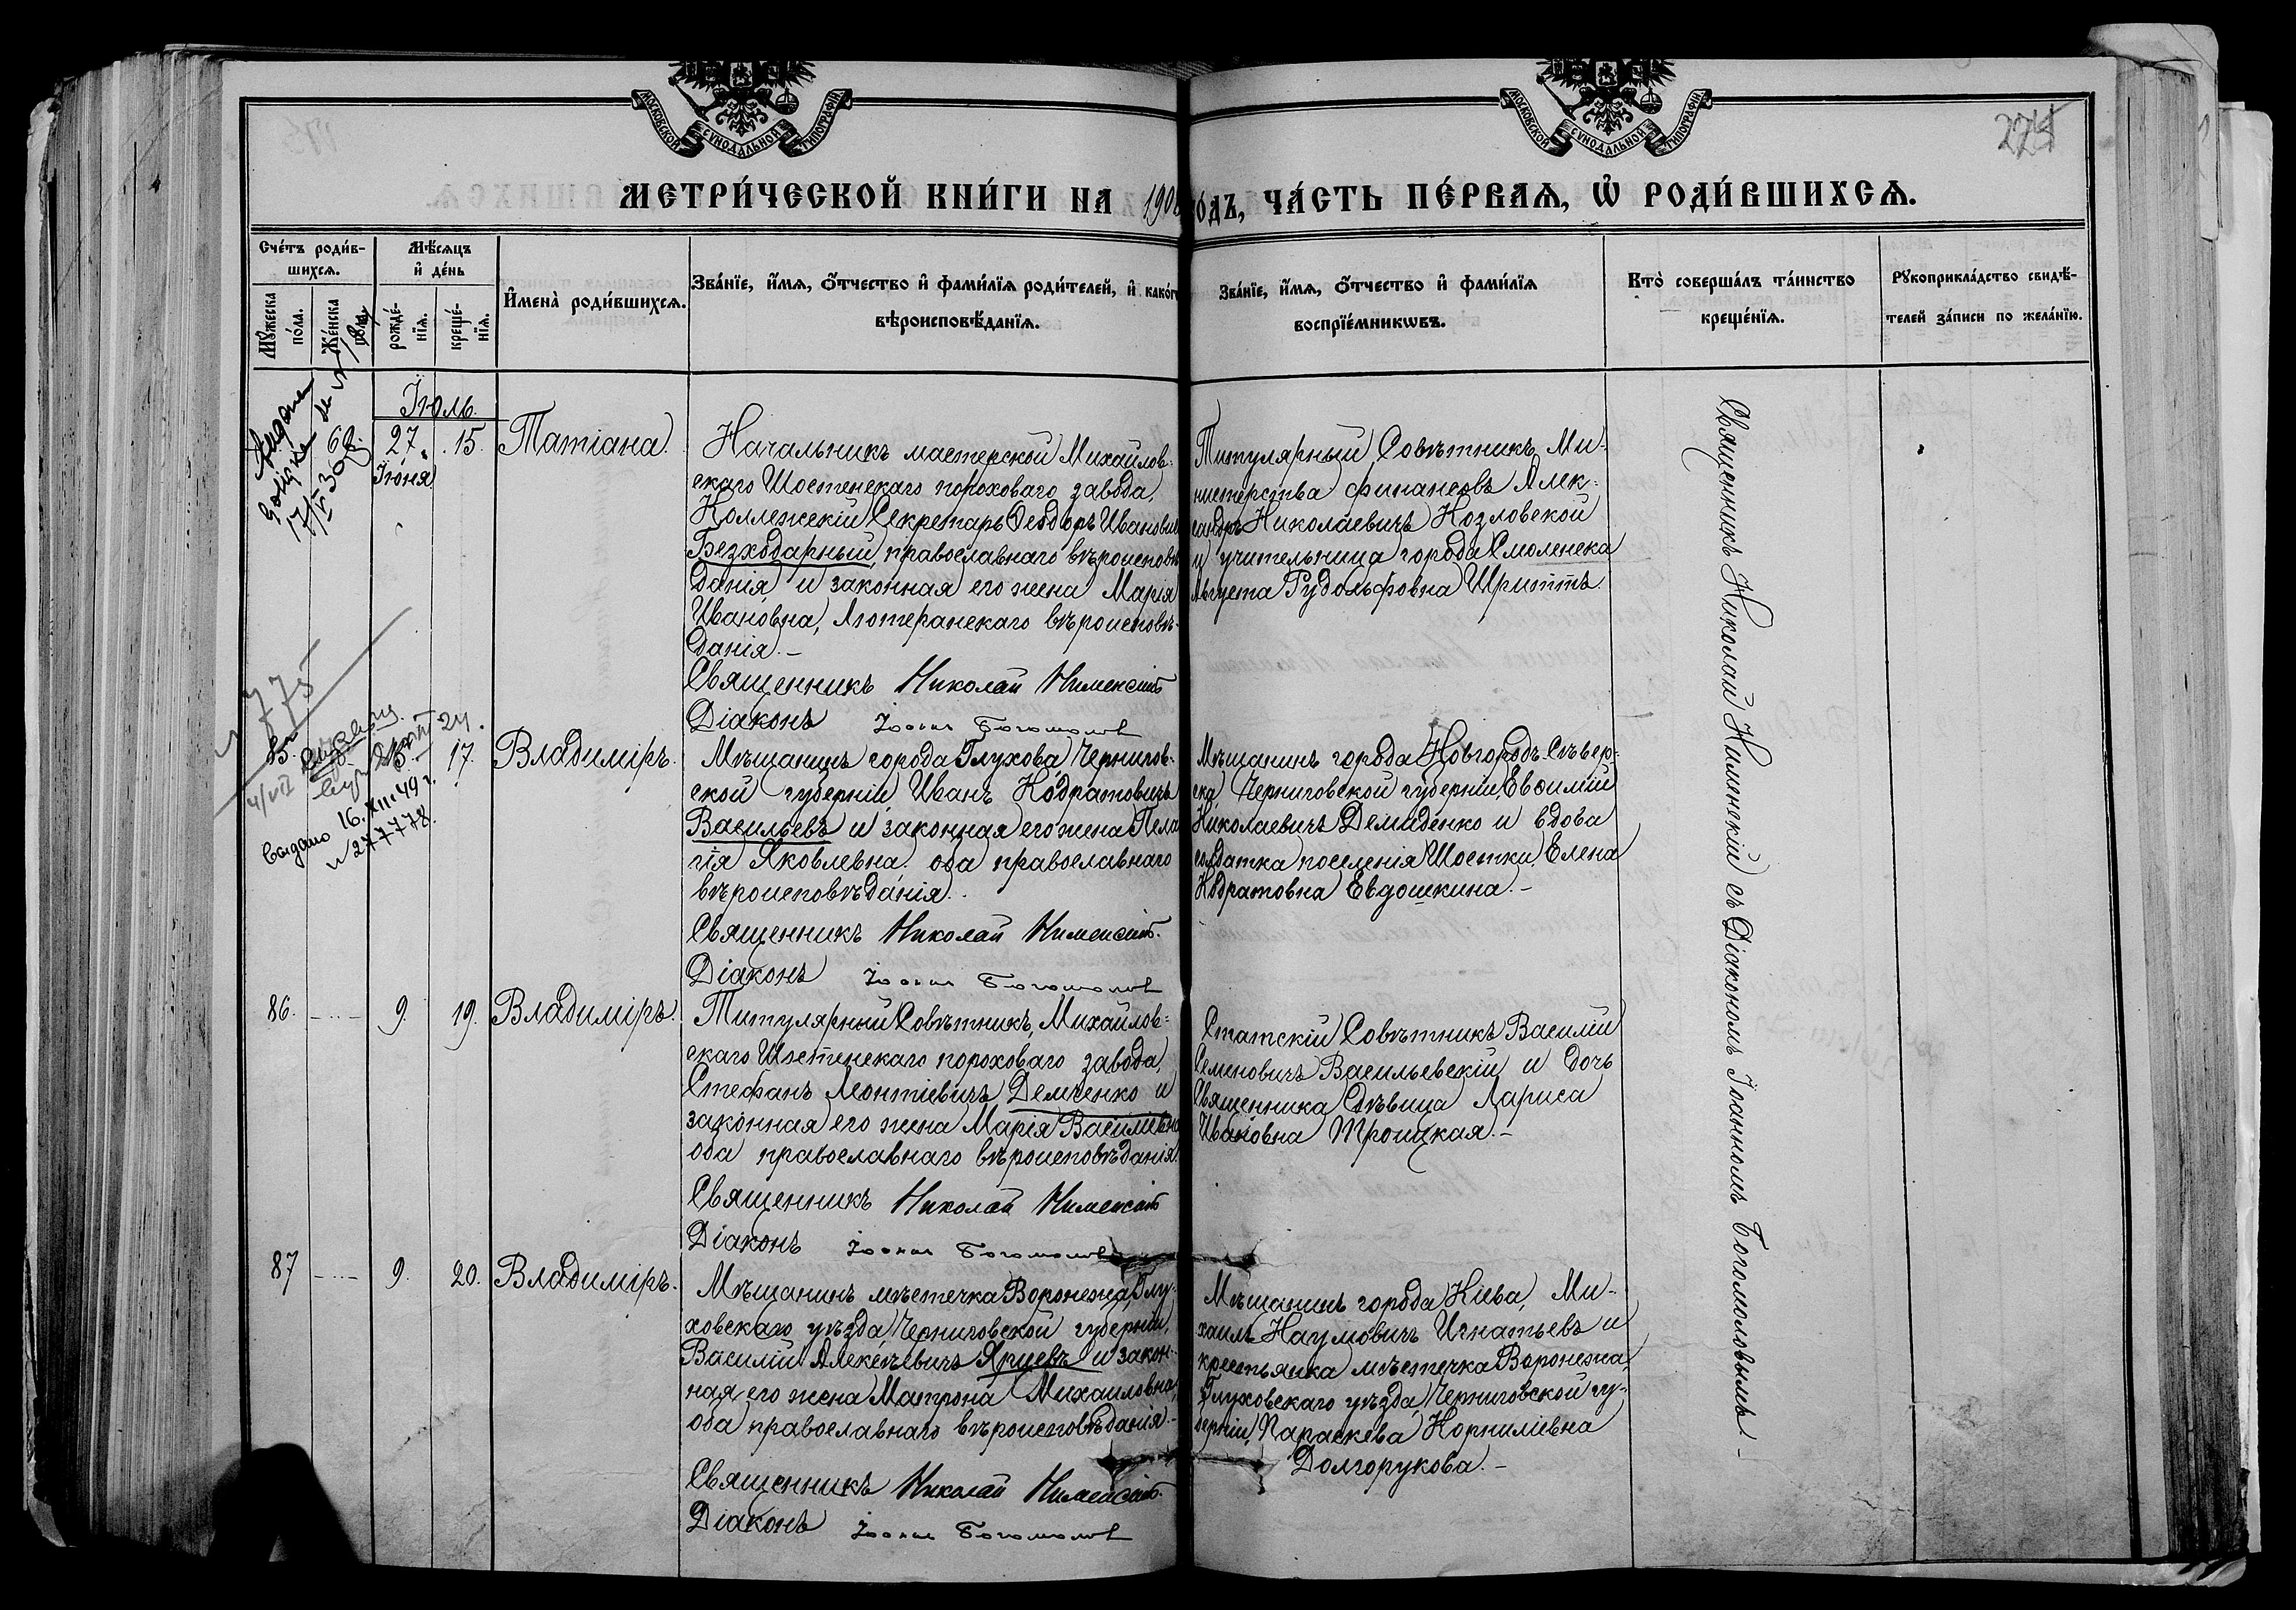 МОСКОВСКОЙ СУНОДАЛЬНОЙ ТИПОГРАФІИ
МОСКОВСКОЙ СУНОДАЛЬНОЙ ТИПОГРАФІИ
МЕТРИ́ЧЕСКОЙ КНИ́ГИ НА 1908
ОДЪ, ЧА́СТЬ ПЕ́РВАѦ, Ѽ РОДИ́ВШИХСѦ.
Сче́тъ роди́в-
шихсѧ.
Мꙋжеска
по́ла.
Же́нска
по́ла.
Мѣ́сѧцъ
и҆ де́нь
рожде́-
нїѧ.
креще́-
нїѧ.
И҆мена̀ роди́вшихсѧ.
Зва́нїе, и҆́мѧ, ѻ҆́тчество и҆ фами́лїѧ роди́телей, и҆ како́гѡ
вѣроисповѣ́данїѧ.
Зва́нїе, и҆́мѧ, ѻ҆́тчество и҆ фами́лїѧ
воспрїе́мникѡвъ.
Кто̀ соверша́лъ та́инство
креще́нїѧ.
Рꙋкоприкла́дство свидѣ́-
телей за́писи по жела́нїю.
Іюль.
27. 15. Татіана.
Іюня
Начальникъ мастерской Михайлов-
скаго Шостенскаго пороховаго завода,
Коллежскій Секретарь Ѳеодоръ Ивановичъ
Безходарный, православнаго вѣроисповѣ-
данія и законная его жена Марія
Ивановна, лютеранскаго вѣроисповѣ-
данія.-
Священникъ Николай
Діаконъ Іоаннъ Богомоловъ
Титулярный Совѣтникъ Ми-
нистерства финансовъ Алек-
сандръ Николаевичъ Козловской
и учительница города Смоленска
Августа Рудольфовна Шриттъ.
17. Владиміръ.
Мѣщанинъ города Глухова Чернигов-
ской губерніи Иванъ Кодратовичъ
Васильевъ и законная его жена Пела
гія Яковлевна. оба православнаго
вѣроисповѣданія.
Священникъ Николай
Діаконъ Іоаннъ Богомоловъ
Мѣщанинъ города Новгородъ-Сѣвер-
ска, Черниговской губерніи, Евѳимій
Николаевичъ Демиденко и вдова
солдатка поселенія Шостки, Елена
Кодратовна Евдошкина.-
выдано 16.XII.49 г.
86. 9. 19. Владиміръ.
Титулярный Совѣтникъ, Михайлов-
скаго Шостенскаго пороховаго завода,
Стефанъ Леонтіевичъ Демченко и
законная его жена Марія Васильевна
оба православнаго вѣроисповѣданія.
Священникъ Николай
Діаконъ Іоаннъ Богомоловъ
Статскій Совѣтникъ Василій
Семеновичъ Васильевскій и дочь
Священника дѣвица Лариса
Ивановна Троицкая.-
87 9. 20. Владиміръ.
Мѣщанинъ мѣстечка Воронежа, Глу-
ховскаго уѣзда Черниговской губерніи,
Василій Алексѣевичъ Ярцевъ и закон-
ная его жена Матрона Михаиловна,
оба православнаго вѣроисповѣданія.-
Священникъ Николай
Діаконъ Іоаннъ Богомоловъ
Мѣщанинъ города Кіева, Ми-
хаилъ Наумовичъ Игнатьевъ и
крестьянка мѣстечка Воронежа,
Глуховскаго уѣзда, Черниговской гу-
берніи, Параскева Корниліевна
Долгорукова.-
Священникъ Николай съ Діакономъ Іоанномъ Богомоловымъ-